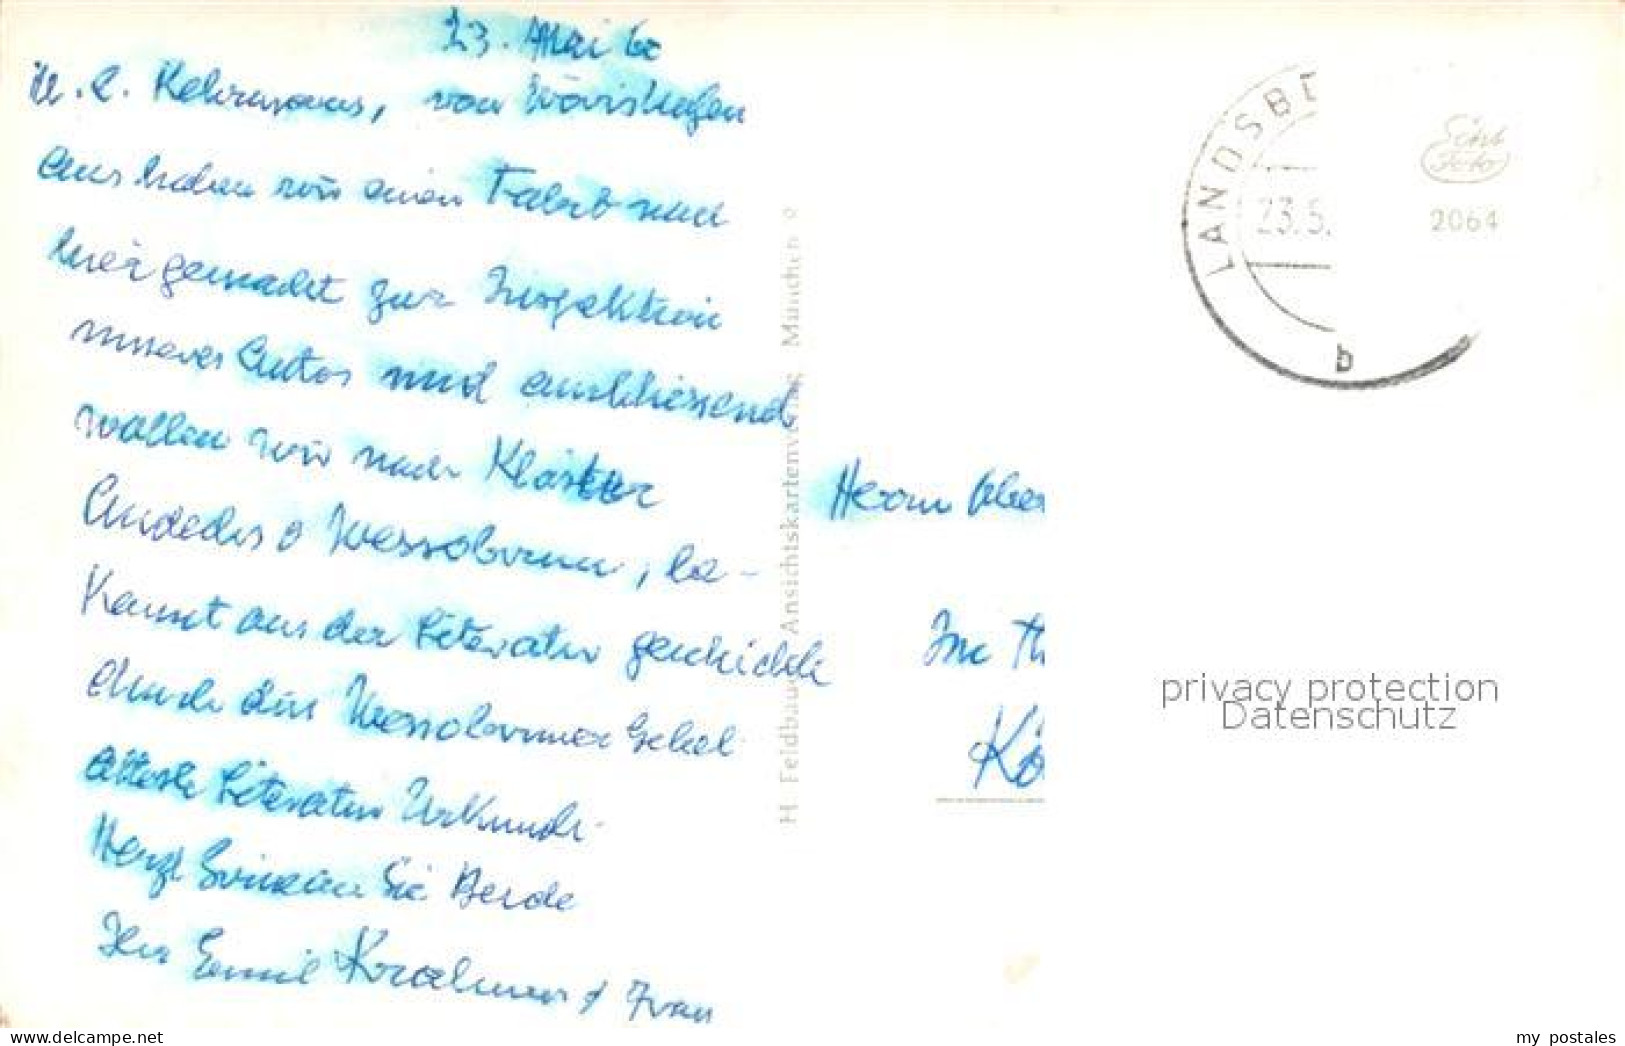 23. Mai 60
von Wörishofen
aus haben wir einen Fahrt nach
hier gemacht zur Inspektion
unseres Autos und anschliessend
wollen wir nach Kloster
Andechs & Wessobrunn, be-
kannt aus der Literatur geschichte
durch das Wessobrunner Gebet
älteste Literatur Urkunde
Herzl Sie Beide
Ihr Emil & Frau
H. Feldbauer Ansichtskartenverlag München 9
LANDSBE
23.5.
b
Echt
Foto
2064
Herrn Ober
Im Th
Kö
privacy protection
Datenschutz
my postales
delcampe.net